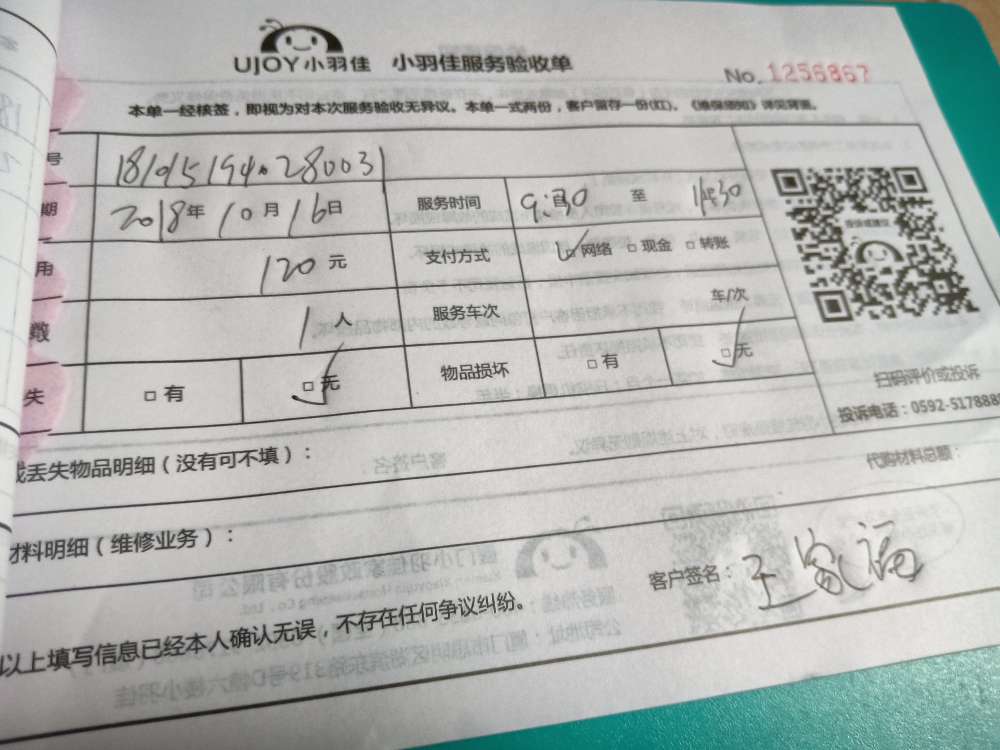 UJOY小羽佳 小羽佳服务验收单
No. 1256867
本单一经核签，即视为对本次服务验收无异议。本单一式两份，客户留存一份(红)。《维保须知》详见背面。
号
期 2018年10月16日 服务时间 9:30 至
用 120元 支付方式 网络 □现金 □转账
数 1人 服务车次 车/次
失 □有 □无 物品损坏 □有 □无
扫码评价或投诉
投诉电话：0592-517888
丢失物品明细（没有可不填）：
代购材料总额：
材料明细（维修业务）：
客户签名：王家福
以上填写信息已经本人确认无误，不存在任何争议纠纷。